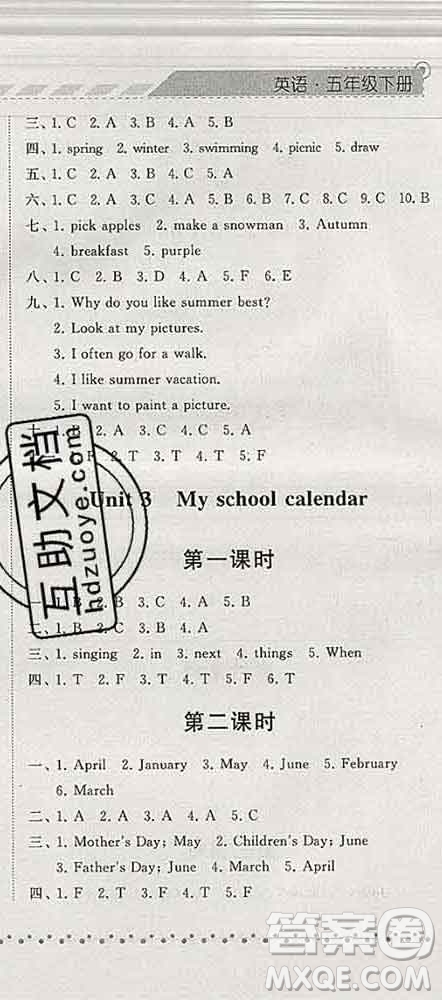 英语·五年级下册
三、1. C 2. A 3. B 4. A 5. B
四、1. spring 2. winter 3. swimming 4. picnic 5. draw
五、1. C 2. A 3. C 4. A 5. C
六、1. C 2. A 3. A 4. A 5. B 6. B 7. B 8. C 9. C 10. B
七、1. pick apples 2. make a snowman 3. Autumn
4. breakfast 5. purple
八、1. C 2. B 3. D 4. A 5. F 6. E
九、1. Why do you like summer best?
2. Look at my pictures.
3. I often go for a walk.
4. I like summer vacation.
5. I want to paint a picture.
2. A 3. C 4. C 5. A
F 2. F 3. T 4. T 5. F
Unit 3 My school calendar
第一课时
2. B 3. C 4. A 5. B
2. C 3. B 4. A
三、1. singing 2. in 3. next 4. things 5. When
四、1. T 2. F 3. T 4. T 5. F 6. T
第二课时
一、1. April 2. January 3. May 4. June 5. February
6. March
二、1. A 2. A 3. A 4. A 5. C
三、1. Mother's Day; May 2. Children's Day; June
3. Father's Day; June 4. March 5. April
四、1. F 2. T 3. T 4. F 5. F
互助文档
hdzuoye.com
答案圈
MXQE.COM